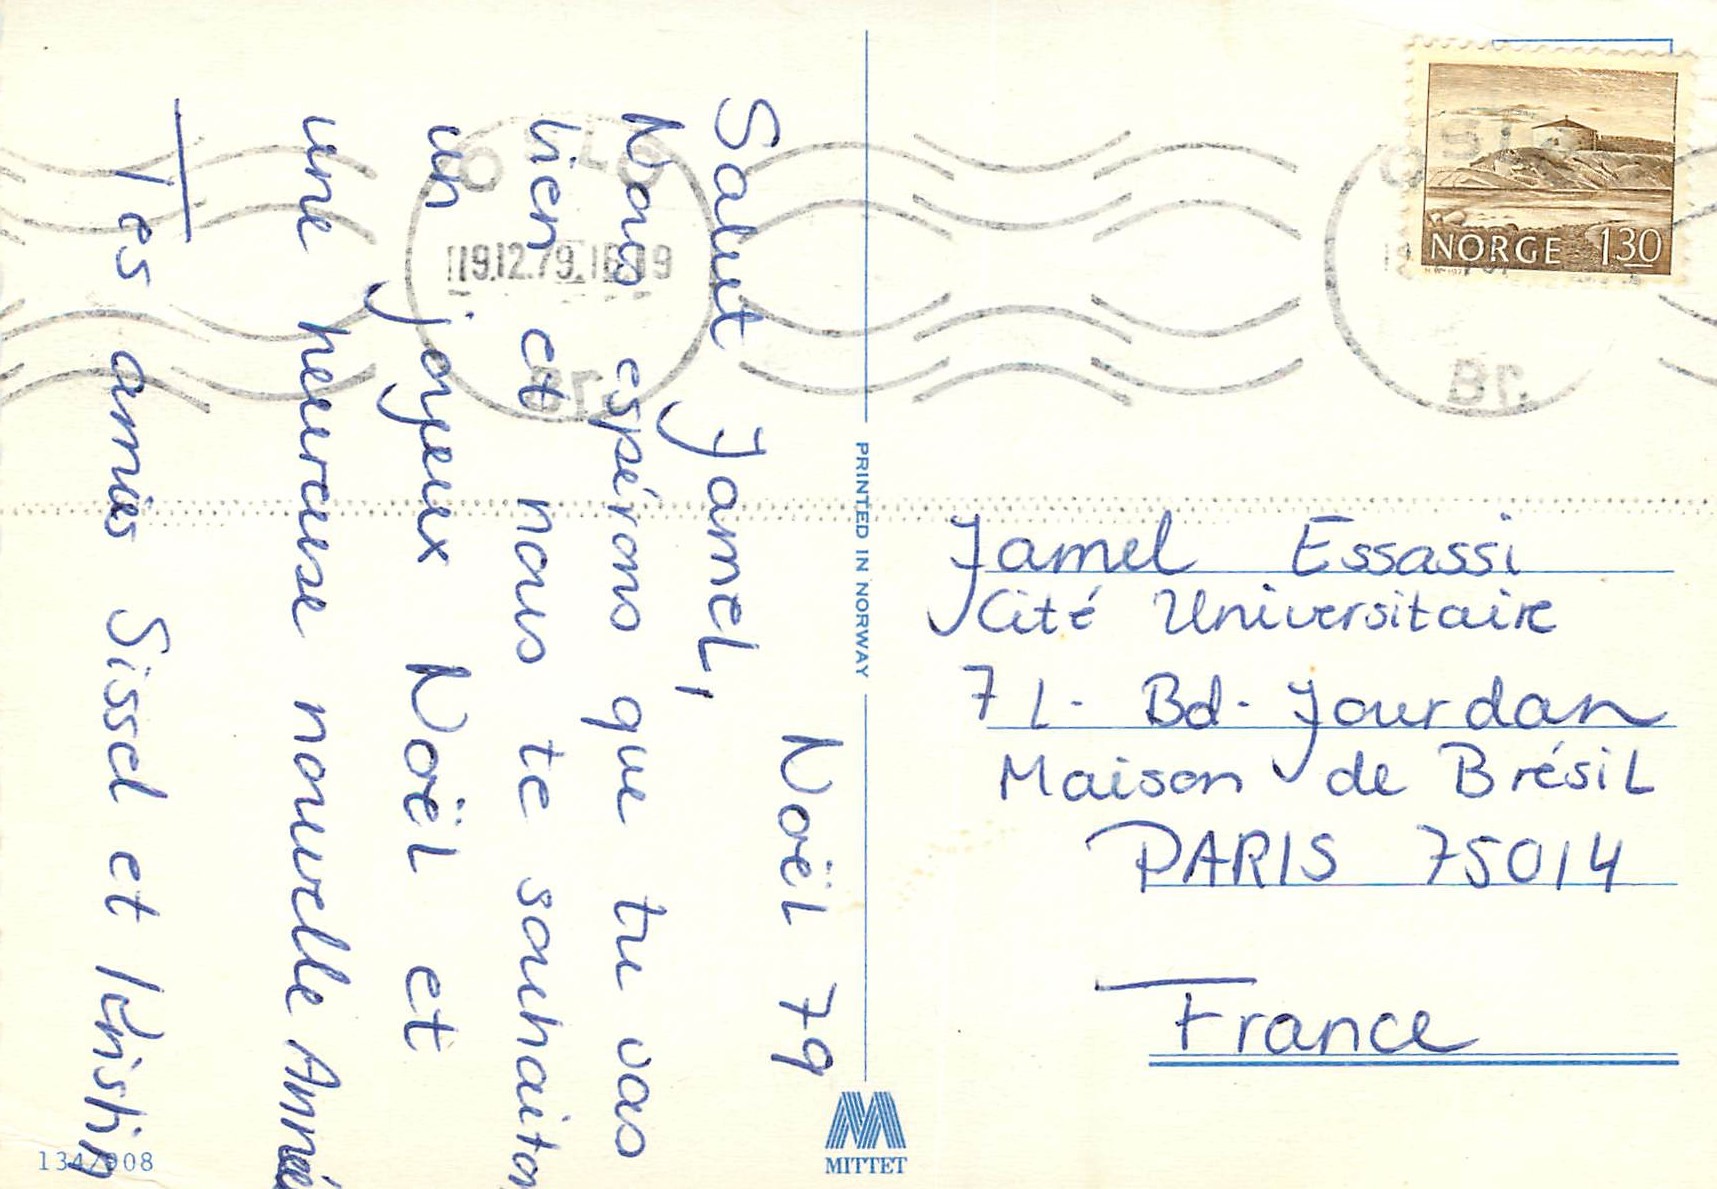 Noël 79
Salut Jamel,
Nous espérons que tu vas
bien et nous te souhaiton
un joyeux Noël et
une heureuse nouvelle Année
Tes amies Sissel et Kristin
134/908
PRINTED IN NORWAY
MITTET
OSLO
19.12.79.16
Br.
NORGE 130
OSLO
Br.
Jamel Essassi
Cité Universitaire
71- Bd. Jourdan
Maison de Brésil
PARIS 75014
France